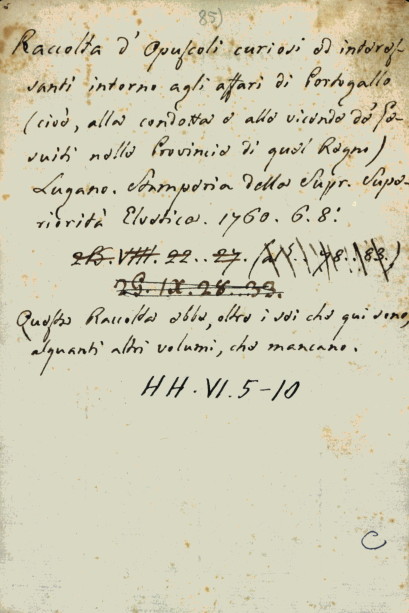 85)
Raccolta d' Opuscoli curiosi ed interes-
santi intorno agli affari di Portogallo
(cioè, alla condotta e alle vicende de' Ge-
suiti nella Provincia di quel Regno)
Lugano. Stamperia della Supr. Supe-
riorità Elvetica. 1760. 6. 8:
VIII. 22..27.
26. IX. 28..33.
Questa Raccolta ebbe, oltre i sei che qui sono,
alquanti altri volumi, che mancano.
HH. VI. 5-10
C